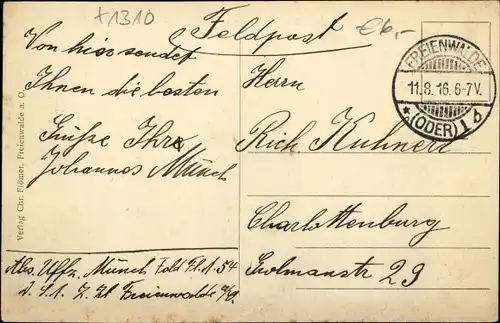 x1310
€6,-
Feldpost
FREIENWALDE
11.8.16.6-7V.
* (ODER) 1 b
Von hier sendet
Ihnen die besten
Grüße Ihr
Johannes Münch
Herrn
Rich. Kuhnert
Charlottenburg
Sculmanstr 29
Abs. Uffz. Münch Feld Fl. A. 54
Z. Zt Freienwalde a/O.
Verlag Chr. Flömer, Freienwalde a. O.